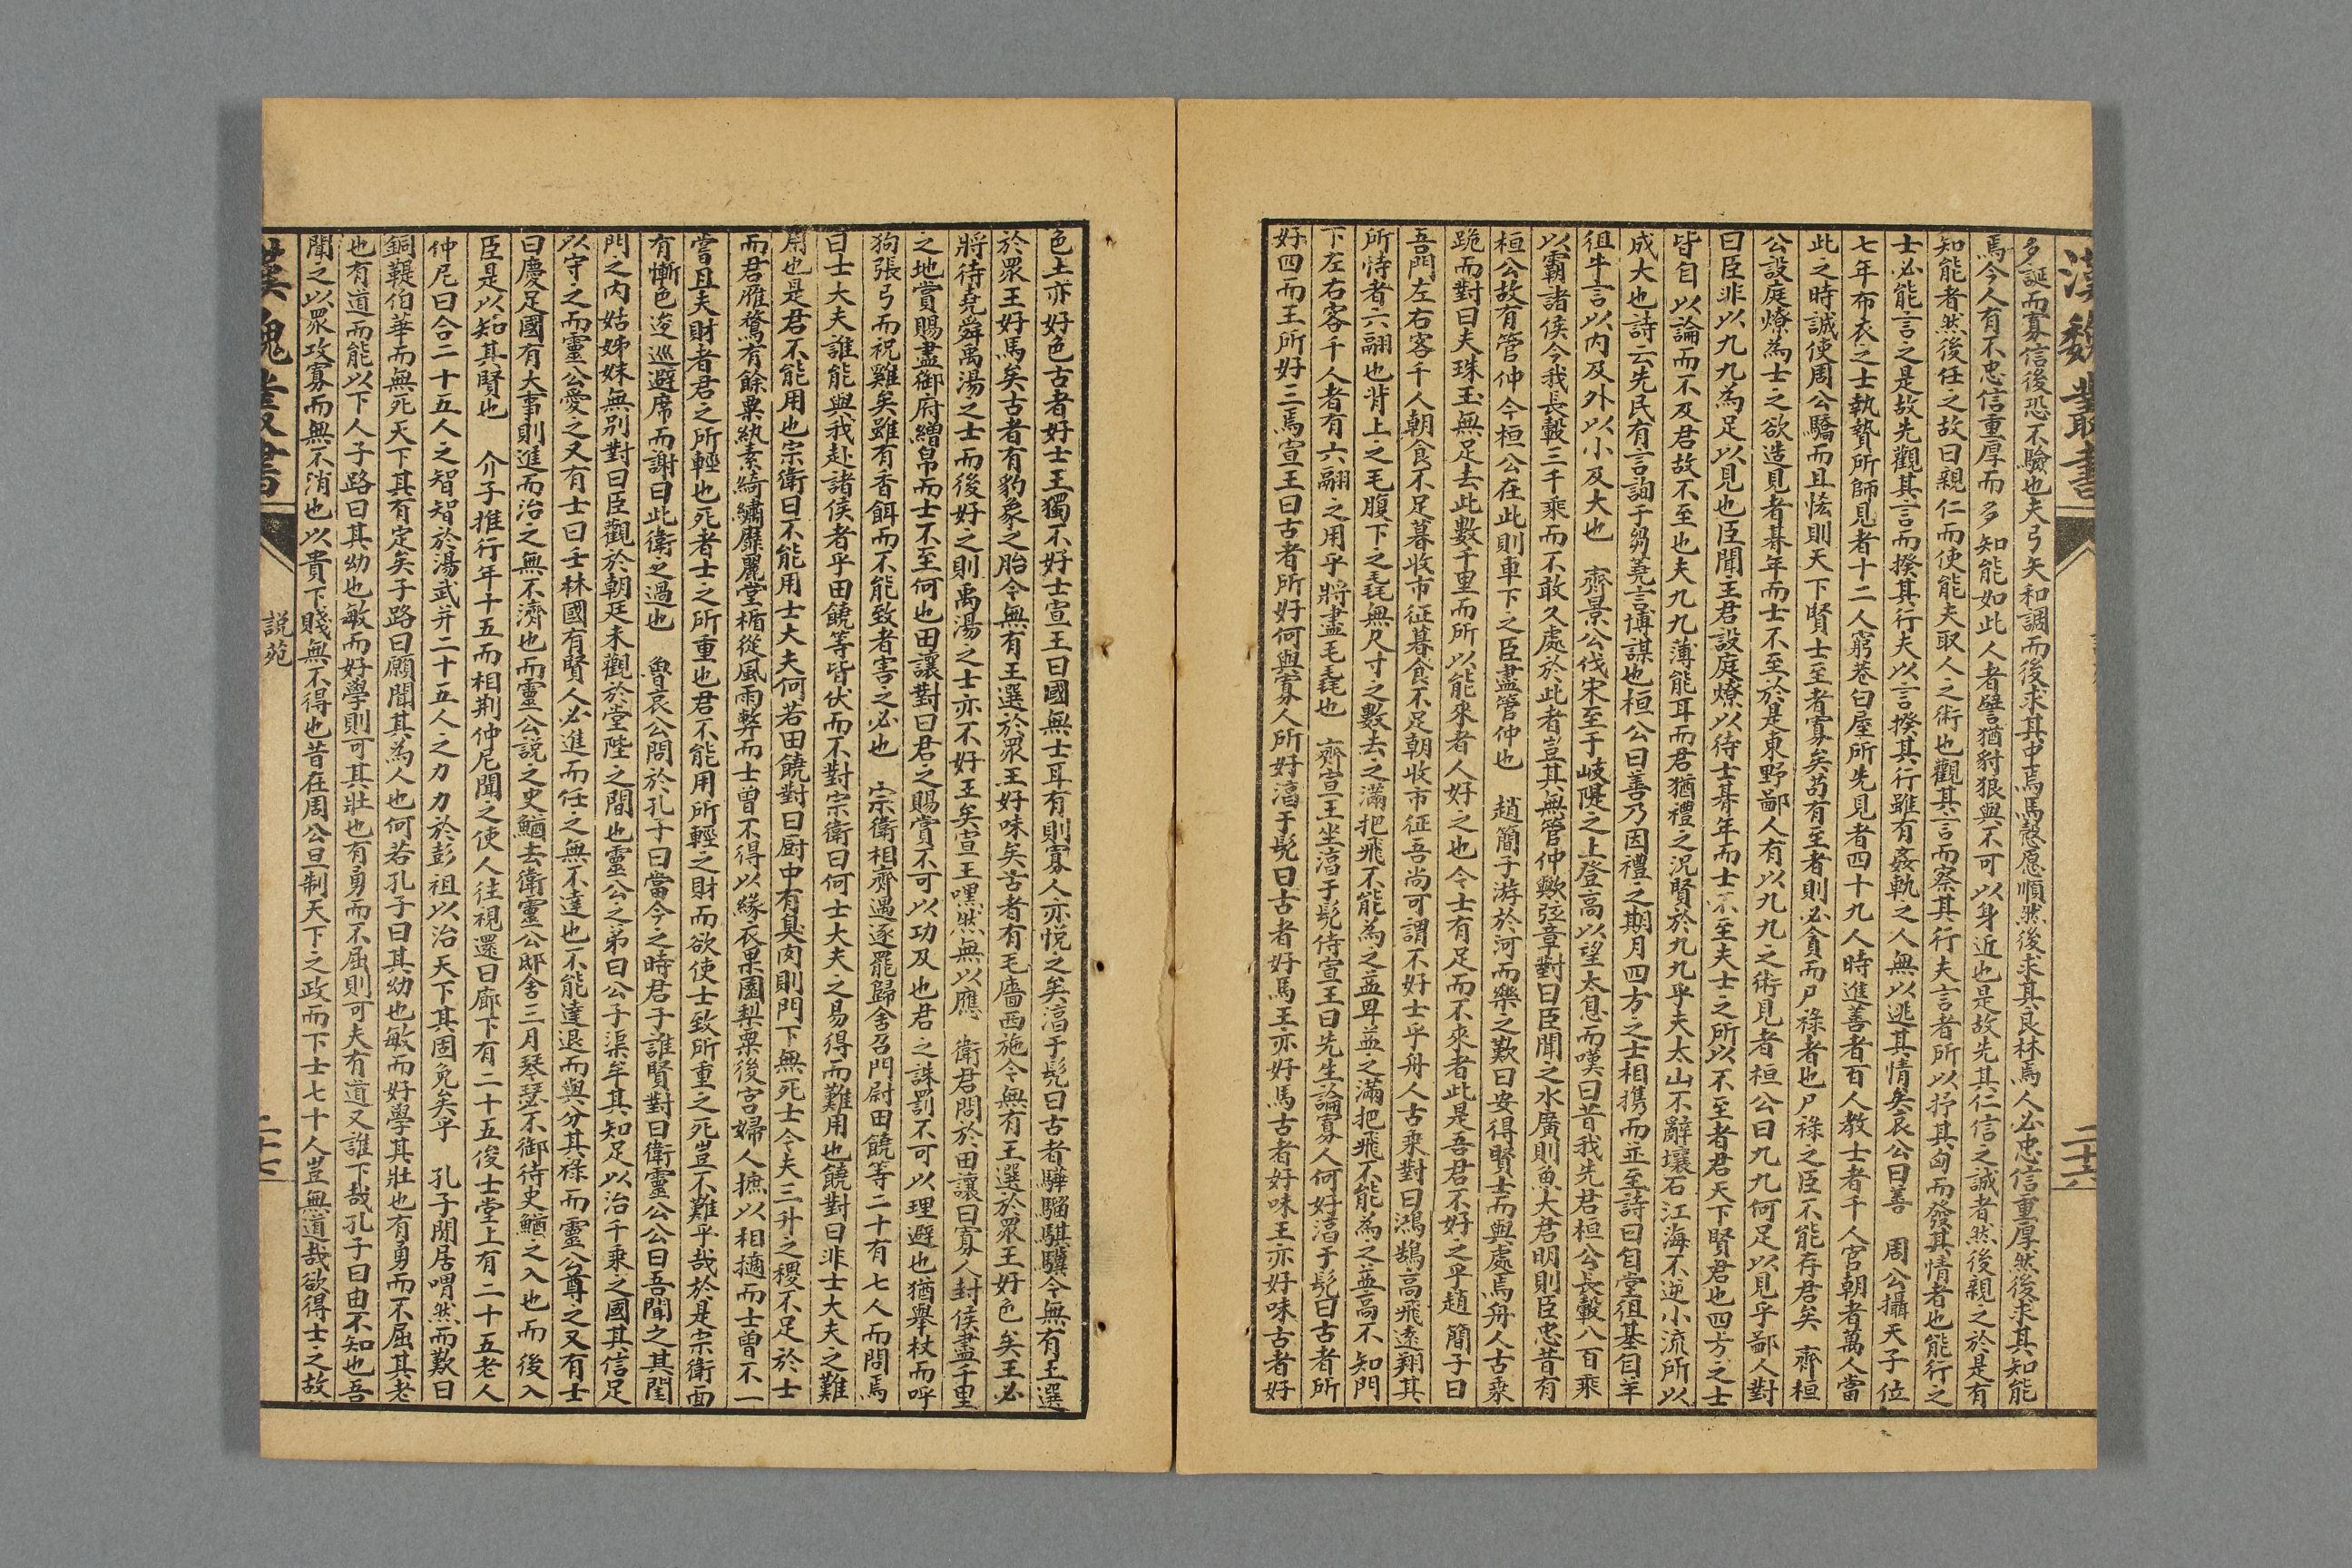 漢魏叢書
二十六
多誕而寡信後恐不驗也夫弓矢和調而後求其中焉馬慤愿順然後求其良材焉人必忠信重厚然後求其知能
焉今人有不忠信重厚而多知能如此人者譬猶豺狼與不可以身近也是故先其仁信之誠者然後親之於是有
知能者然後任之故曰親仁而使能夫取人之術也觀其言而察其行夫言者所以抒其匈而發其情者也能行之
士必能言之是故先觀其言而揆其行夫以言揆其行雖有姦軌之人無以逃其情矣哀公曰善　周公攝天子位
七年布衣之士執贄所師見者十二人窮巷白屋所先見者四十九人時進善者百人教士者千人宮朝者萬人當
此之時誠使周公驕而且恡則天下賢士至者寡矣苟有至者則必貪而尸祿者也尸祿之臣不能存君矣　齊桓
公設庭燎為士之欲造見者朞年而士不至於是東野鄙人有以九九之術見者桓公曰九九何足以見乎鄙人對
曰臣非以九九為足以見也臣聞主君設庭燎以待士朞年而士不至夫士之所以不至者君天下賢君也四方之士
皆自以論而不及君故不至也夫九九薄能耳而君猶禮之況賢於九九乎夫太山不辭壤石江海不逆小流所以
成大也詩云先民有言詢于芻蕘言博謀也桓公曰善乃因禮之期月四方之士相携而並至詩曰自堂徂基自羊
徂牛言以內及外以小及大也　齊景公伐宋至于岐隄之上登高以望太息而嘆曰昔我先君桓公長轂八百乘
以霸諸侯今我長轂三千乘而不敢久處於此者豈其無管仲歟弦章對曰臣聞之水廣則魚大君明則臣忠昔有
桓公故有管仲今桓公在此則車下之臣盡管仲也　趙簡子游於河而樂之歎曰安得賢士而與處焉舟人古乘
跪而對曰夫珠玉無足去此數千里而所以能來者人好之也今士有足而不來者此是吾君不好之乎趙簡子曰
吾門左右客千人朝食不足暮收市征暮食不足朝收市征吾尚可謂不好士乎舟人古乘對曰鴻鵠高飛遠翔其
所恃者六翮也背上之毛腹下之毳無尺寸之數去之滿把飛不能為之益卑益之滿把飛不能為之益高不知門
下左右客千人者有六翮之用乎將盡毛毳也　齊宣王坐淳于髡侍宣王曰先生論寡人何好淳于髡曰古者所
好四而王所好三焉宣王曰古者所好何與寡人所好淳于髡曰古者好馬王亦好馬古者好味王亦好味古者好
色王亦好色古者好士王獨不好士宣王曰國無士耳有則寡人亦悅之矣淳于髡曰古者驊騮騏驥今無有王選
於眾王好馬矣古者有豹象之胎今無有王選於眾王好味矣古者有毛廧西施今無有王選於眾王好色矣王必
將待堯舜禹湯之士而後好之則禹湯之士亦不好王矣宣王嘿然無以應　衛君問於田讓曰寡人封侯盡千里
之地賞賜盡御府繒帛而士不至何也田讓對曰君之賜賞不可以功及也君之誅罰不可以理避也猶舉杖而呼
狗張弓而祝雞矣雖有香餌而不能致者害之必也　宗衛相齊遇逐罷歸舍召門尉田饒等二十有七人而問焉
曰士大夫誰能與我赴諸侯者乎田饒等皆伏而不對宗衛曰何士大夫之易得而難用也饒對曰非士大夫之難
用也是君不能用也宗衛曰不能用士大夫何若田饒對曰厨中有臭肉則門下無死士今夫三升之稷不足於士
而君雁鶩有餘粟紈素綺繡靡麗堂楯從風雨弊而士曾不得以緣衣果園梨粟後宮婦人摭以相擿而士曾不一
嘗且夫財者君之所輕也死者士之所重也君不能用所輕之財而欲使士致所重之死豈不難乎哉於是宗衛面
有慚色逡巡避席而謝曰此衛之過也　魯哀公問於孔子曰當今之時君子誰賢對曰衛靈公公曰吾聞之其閨
門之內姑姊妹無別對曰臣觀於朝廷未觀於堂陛之間也靈公之弟曰公子渠牟其知足以治千乘之國其信足
以守之而靈公愛之又有士曰壬林國有賢人必進而任之無不達也不能達退而與分其祿而靈公尊之又有士
曰慶足國有大事則進而治之無不濟也而靈公説之史鰌去衛靈公邸舍三月琴瑟不御待史鰌之入也而後入
臣是以知其賢也　介子推行年十五而相荆仲尼聞之使人往視還曰廊下有二十五俊士堂上有二十五老人
仲尼曰合二十五人之智智於湯武并二十五人之力力於彭祖以治天下其固免矣乎　孔子閒居喟然而歎曰
銅鞮伯華而無死天下其有定矣子路曰願聞其為人也何若孔子曰其幼也敏而好學其壯也有勇而不屈其老
也有道而能以下人子路曰其幼也敏而好學則可其壯也有勇而不屈則可夫有道又誰下哉孔子曰由不知也吾
聞之以眾攻寡而無不消也以貴下賤無不得也昔在周公旦制天下之政而下士七十人豈無道哉欲得士之故
漢魏叢書
説苑
二十七